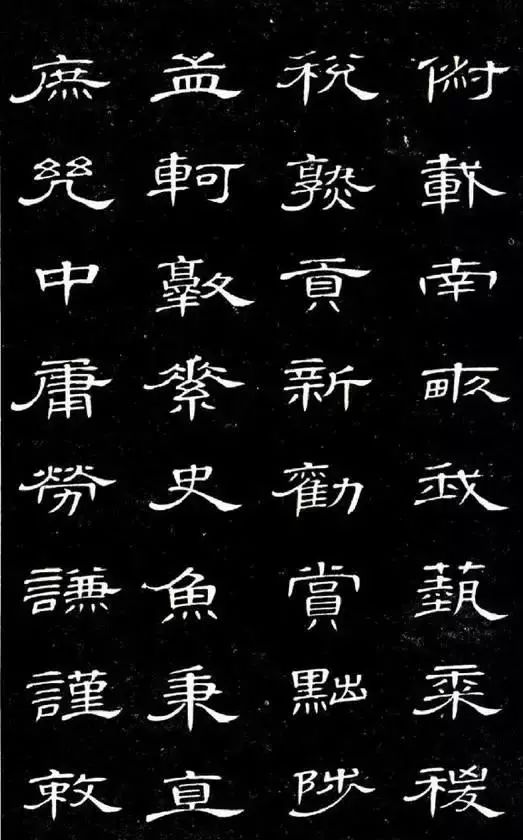 俶載南畝我藝黍稷
稅熟貢新勸賞黜陟
孟軻敦素史魚秉直
庶幾中庸勞謙謹敕